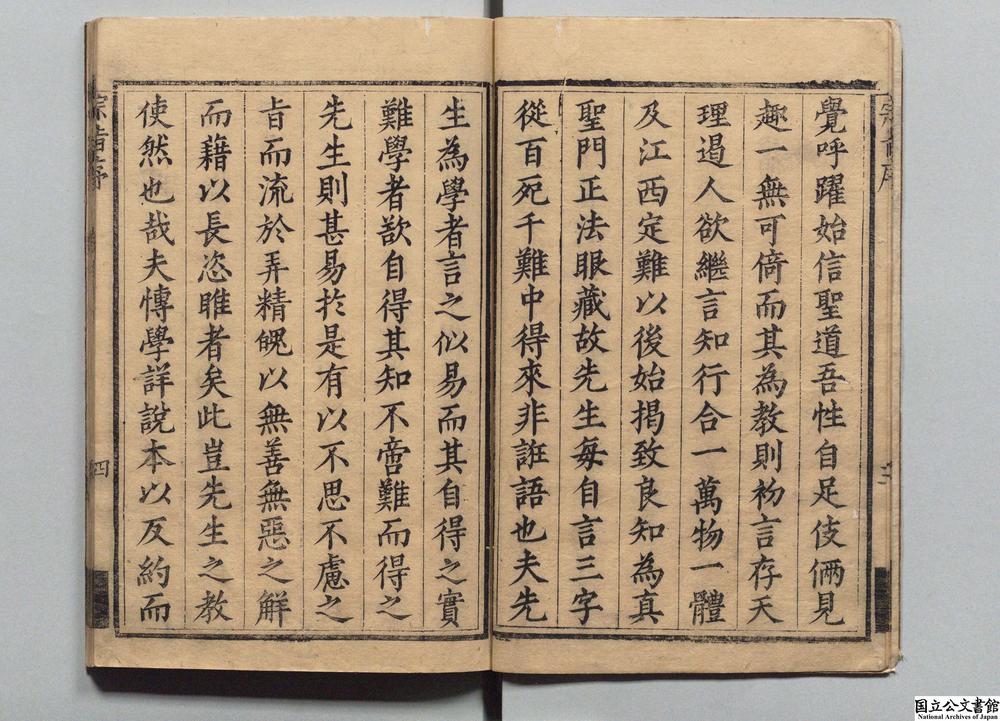 覺呼躍始信聖道吾性自足伎倆見
趣一無可倚而其為教則初言存天
理遏人欲繼言知行合一萬物一體
及江西定難以後始揭致良知為真
聖門正法眼藏故先生每自言三字
從百死千難中得來非誑語也夫先
生為學者言之似易而其自得之實
難學者欲自得其知不啻難而得之
先生則甚易於是有以不思不慮之
旨而流於弄精魄以無善無惡之解
而藉以長恣睢者矣此豈先生之教
使然也哉夫慱學詳說本以反約而
宗旨序
四
国立公文書館
National Archives of Japan